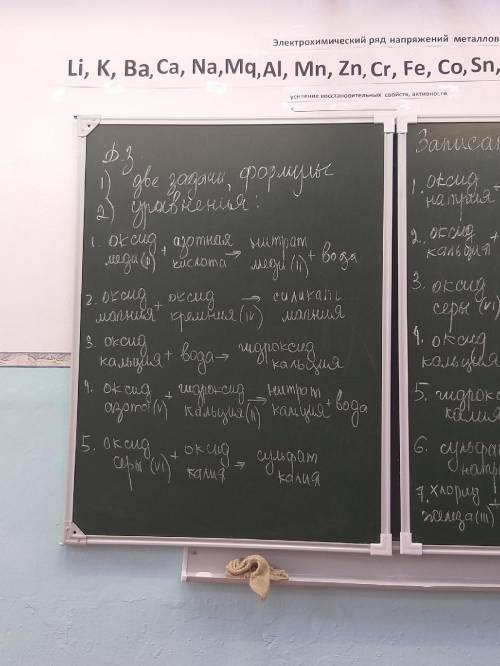 Электрохимический ряд напряжений металлов
Li, K, Ba, Ca, Na, Mq, Al, Mn, Zn, Cr, Fe, Co, Sn,
усиление восстановительных свойств, активности
Д.З.
1) две задачи, формулы
2) уравнения:
1. оксид меди (II) + азотная кислота → нитрат меди (II) + вода
2. оксид магния + оксид кремния (IV) → силикат магния
3. оксид кальция + вода → гидроксид кальция
4. оксид азота (V) + гидроксид кальция (II) → нитрат кальция + вода
5. оксид серы (VI) + оксид калия → сульфат калия
Записат
1. оксид натрия +
2. оксид кальция +
3. оксид серы (VI)
4. оксид кальция
5. гидрок калия
6. сульфа натр
7. хлорид железа (III)